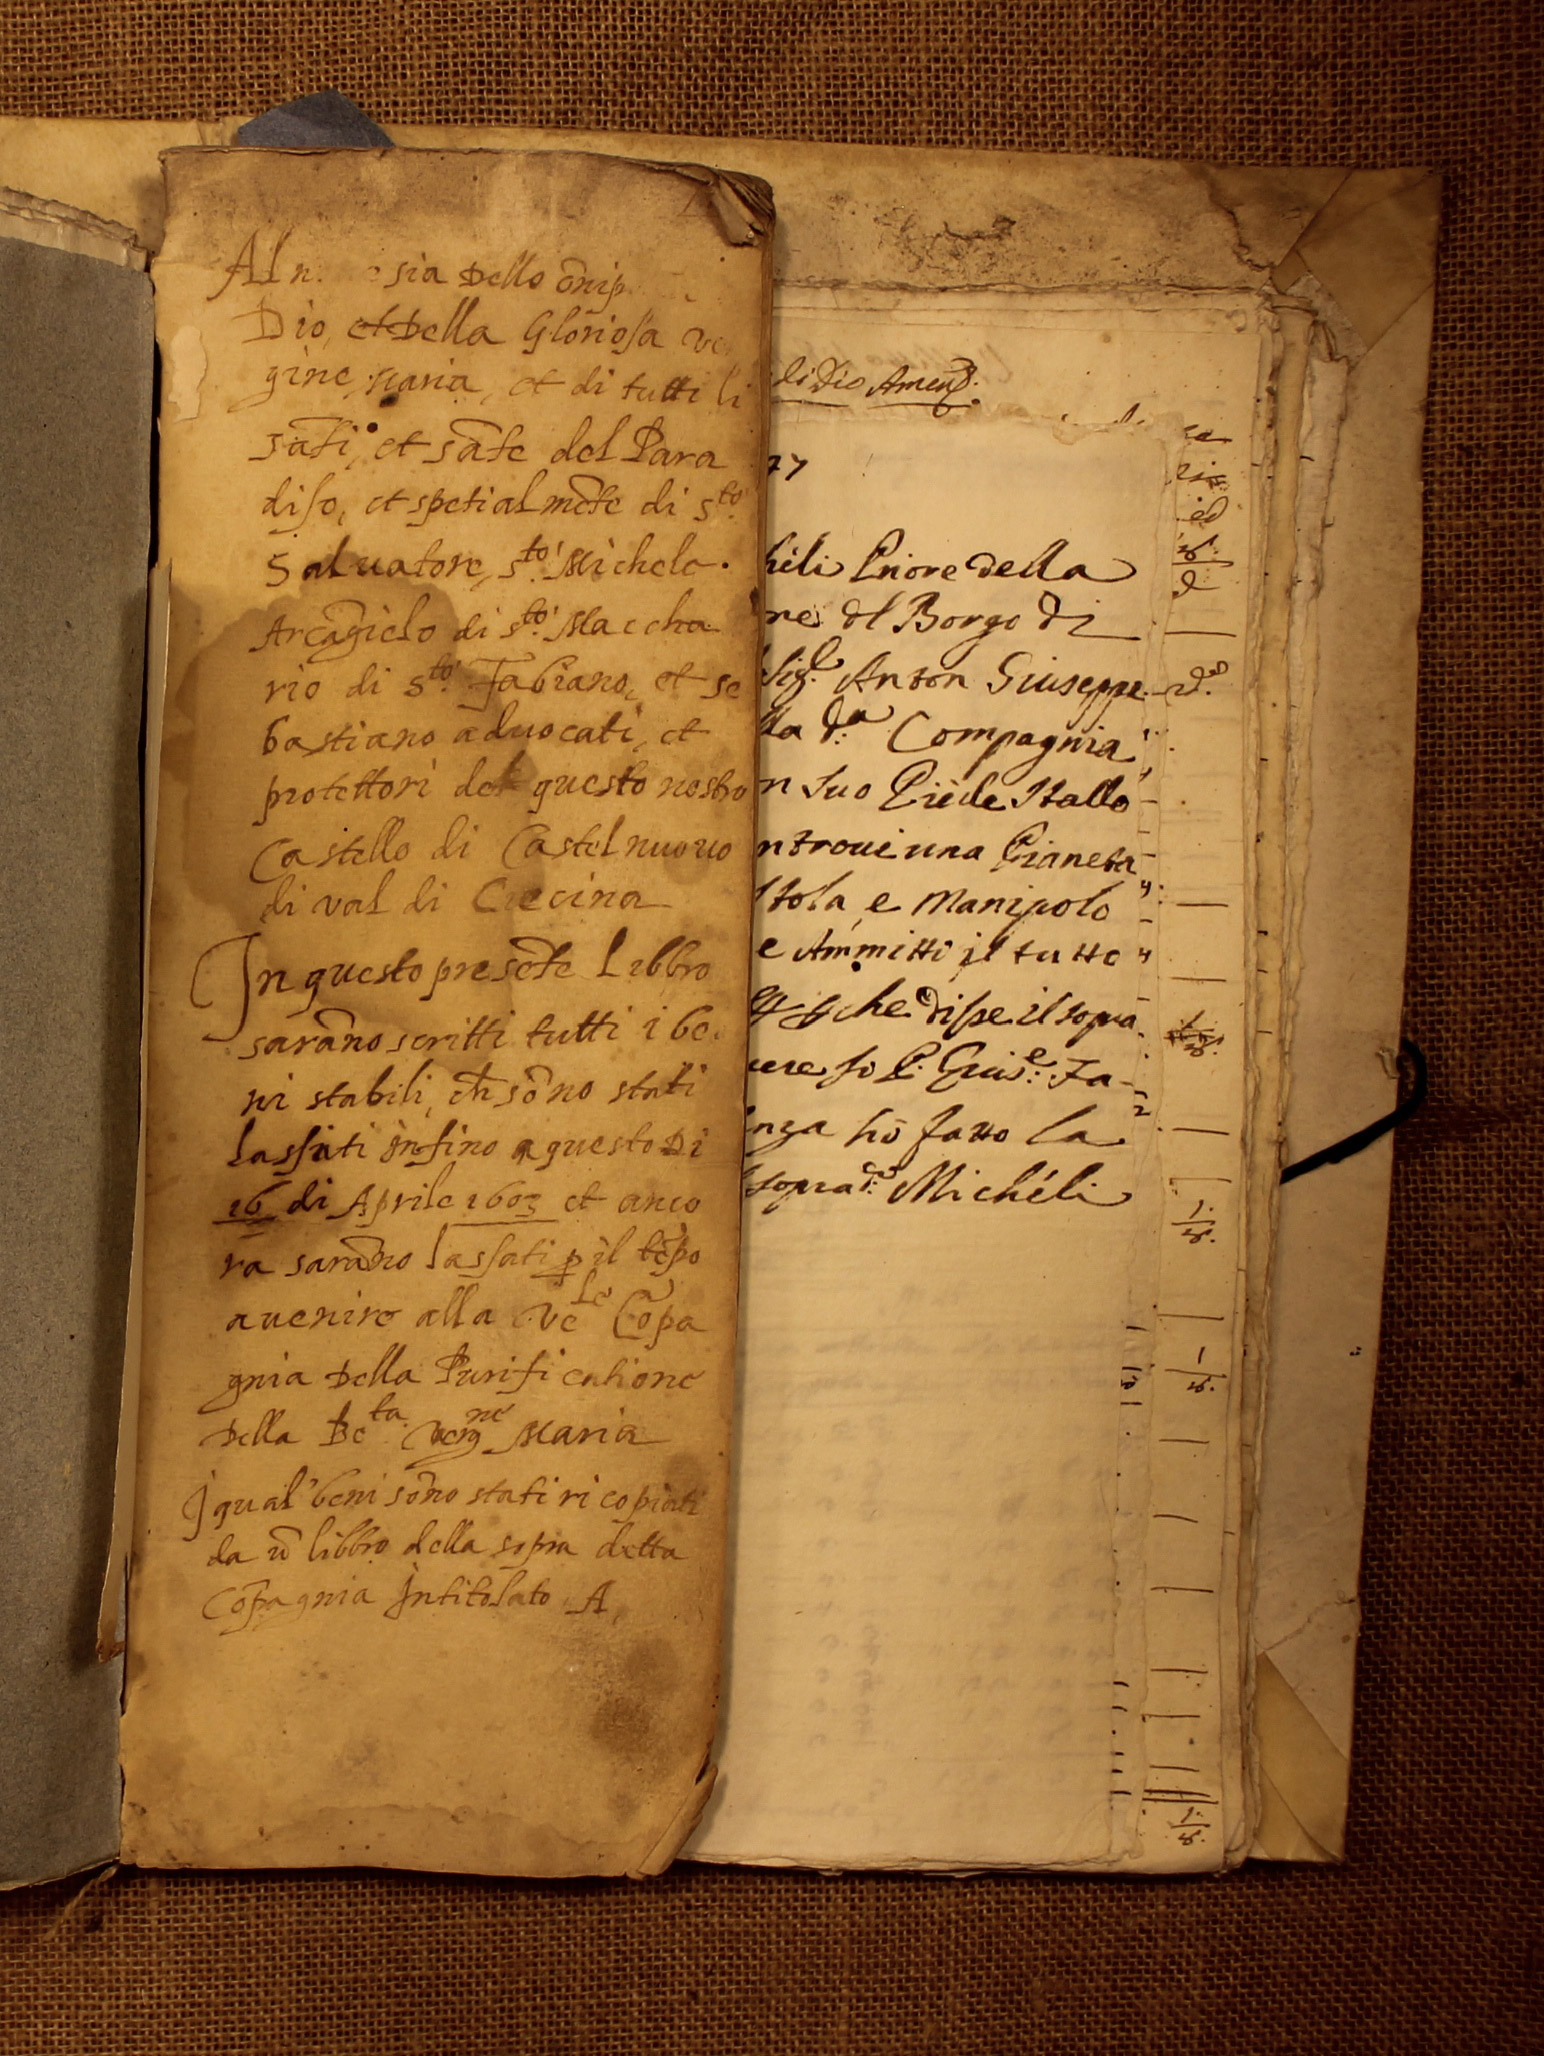 Al n. sia dello ōnip
Dio, et della Gloriosa ve
gine Maria, et di tutti li
sāti, et sāte del Para
diso, et spetialmēte di s.to
Saluatore, s.to Michele
Arcāgielo di s.to Maccha
rio di s.to Fabiano, et se
bastiano aduocati, et
protettori del questo nostro
Castello di Castelnuouo
di val di Ciecina
In questo presēte Libbro
sarāno scritti tutti i be
ni stabili, ch̄ sōno stati
lassati infino a questo Di
16 di Aprile 1603 et anco
ra sarāno lassati p il tēpo
auenire alla Ve.le Cōpa
gnia della Purificatione
della Be.ta Verg.ne Maria
I qual beni sōno stati ricopiati
da ū libbro della sopra detta
Cōpagnia Intitolato A,
di Dio Amen
77
héli Priore della
re dl Borgo di
Sig.e Anton Giuseppe
la d.a Compagnia
n suo Piède Stallo
ntroui una Pianeta
Stola e Manipolo
e Ammitti il tutto
che disse il sopra
uere fò P. Giuse: Fa-
nza hò fatto la
sopra d.o Michéli